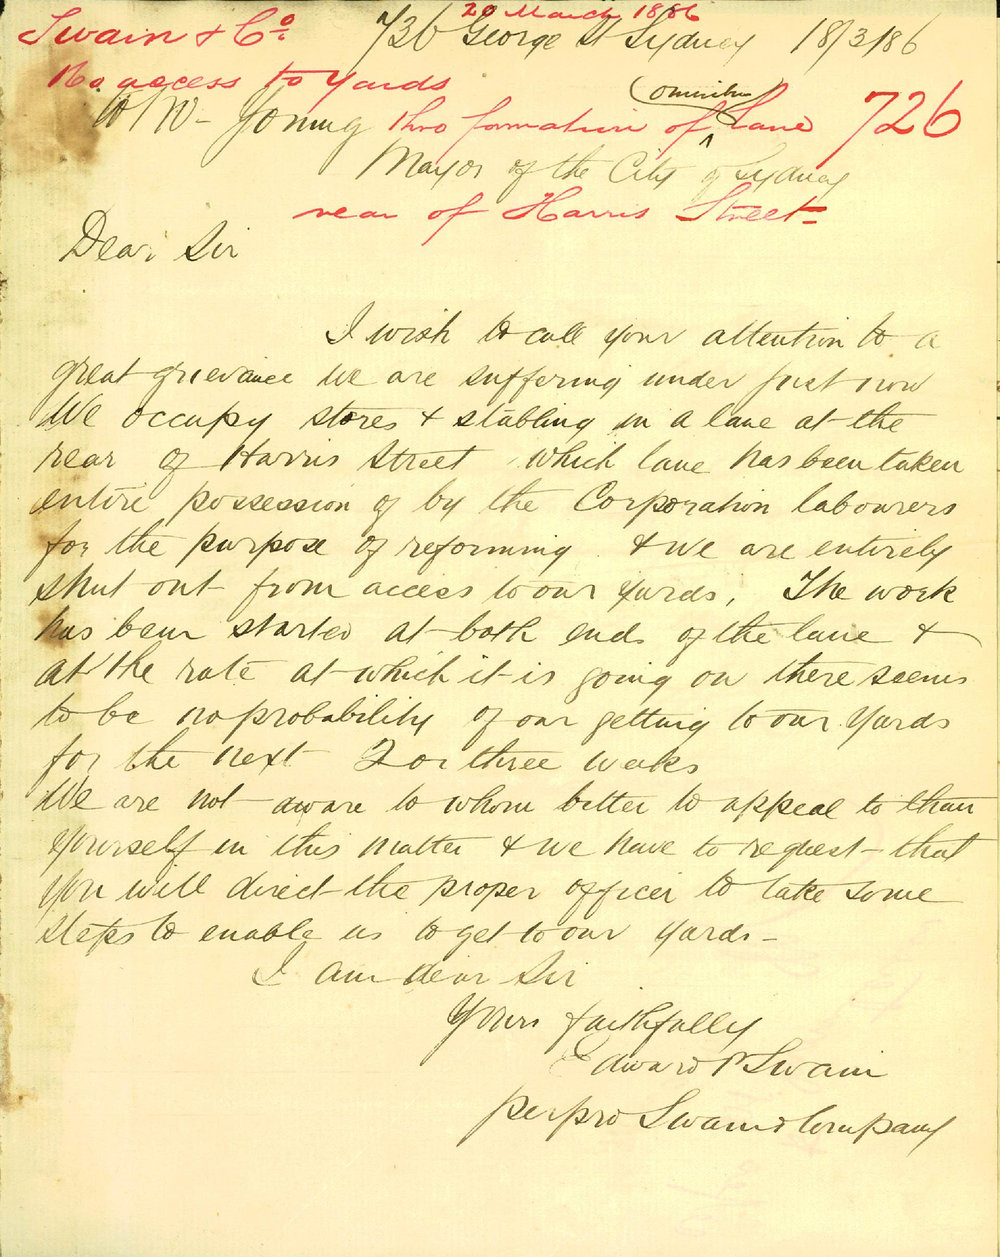 20 March 1886
Swain & Co. 736 George St Sydney 18/3/86
No access to yards
(omnibus)
to W- Young thro formation of Lane 726
Mayor of the City of Sydney
rear of Harris Street-
Dear Sir
I wish to call your attention to a
great grievance we are suffering under just now
We occupy stores & stabling in a lane at the
rear of Harris Street which lane has been taken
entire possession of by the Corporation labourers
for the purpose of reforming & we are entirely
shut out from access to our yards, The work
has been started at both ends of the lane &
at the rate at which it is going on there seems
to be no probability of our getting to our yards
for the next 2 or three weeks
We are not aware to whom better to appeal to than
yourself in this matter & we have to request that
you will direct the proper officer to take some
steps to enable us to get to our yards-
I am dear Sir
Yours faithfully
Edward P Swain
per pro Swain & Company